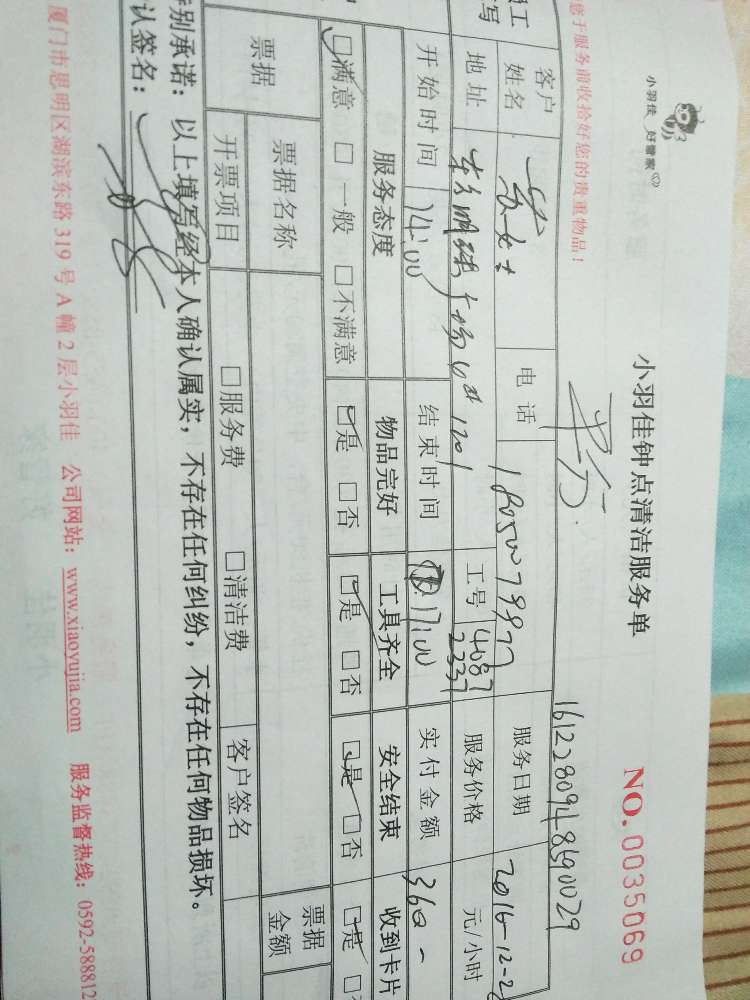 小羽佳 好管家
小羽佳钟点清洁服务单
NO. 0035069
您于服务前收拾好您的贵重物品！
1612280948690029
员工
填写
客户
姓名
女士
电话
服务日期
2016-12-2
地址
工号
4087
2337
服务价格
元/小时
开始时间
14:00
结束时间
17:00
实付金额
360-
服务态度
物品完好
工具齐全
安全结束
收到卡片
☑满意 □一般 □不满意
☑是 □否
☑是 □否
☑是 □否
☑是
票据
票据名称
票据
金额
开票项目
□服务费
□清洁费
客户签名
特别承诺：以上填写经本人确认属实，不存在任何纠纷，不存在任何物品损坏。
认签名：
厦门市思明区湖滨东路319号A幢2层小羽佳 公司网站：www.xiaoyujia.com 服务监督热线：0592-588812